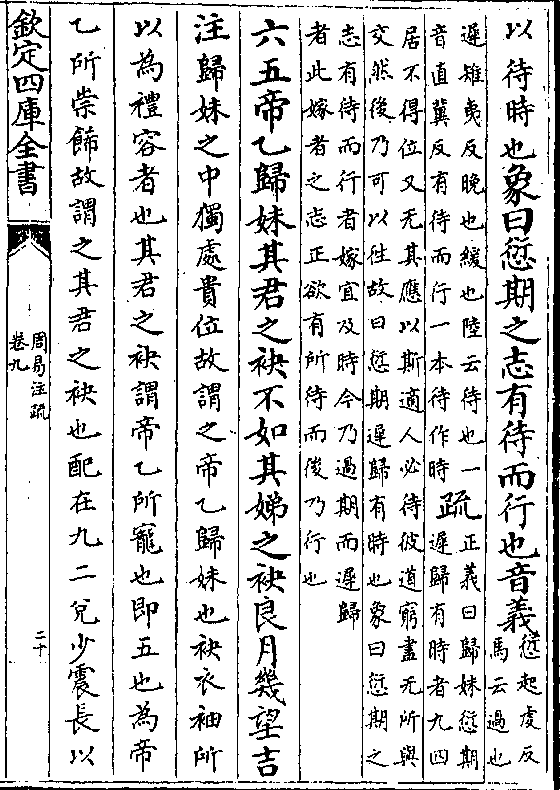 以待時也象曰愆期之志有待而行也音義愆起虔反
馬云過也
遲雉夷反晚也緩也陸云待也一
音直冀反有待而行一本待作時疏正義曰歸妹愆期
遲歸有時者九四
居不得位又无其應以斯適人必待彼道窮盡无所與
交然後乃可以徃故曰愆期遲歸有時也象曰愆期之
志有待而行者嫁宜及時今乃過期而遲歸
者此嫁者之志正欲有所待而後乃行也
六五帝乙歸妹其君之袂不如其娣之袂良月幾望吉
注歸妹之中獨處貴位故謂之帝乙歸妹也袂衣袖所
以為禮容者也其君之袂謂帝乙所寵也即五也為帝
乙所崇飾故謂之其君之袂也配在九二兌少震長以
欽定四庫全書
周易注疏
卷九
二十